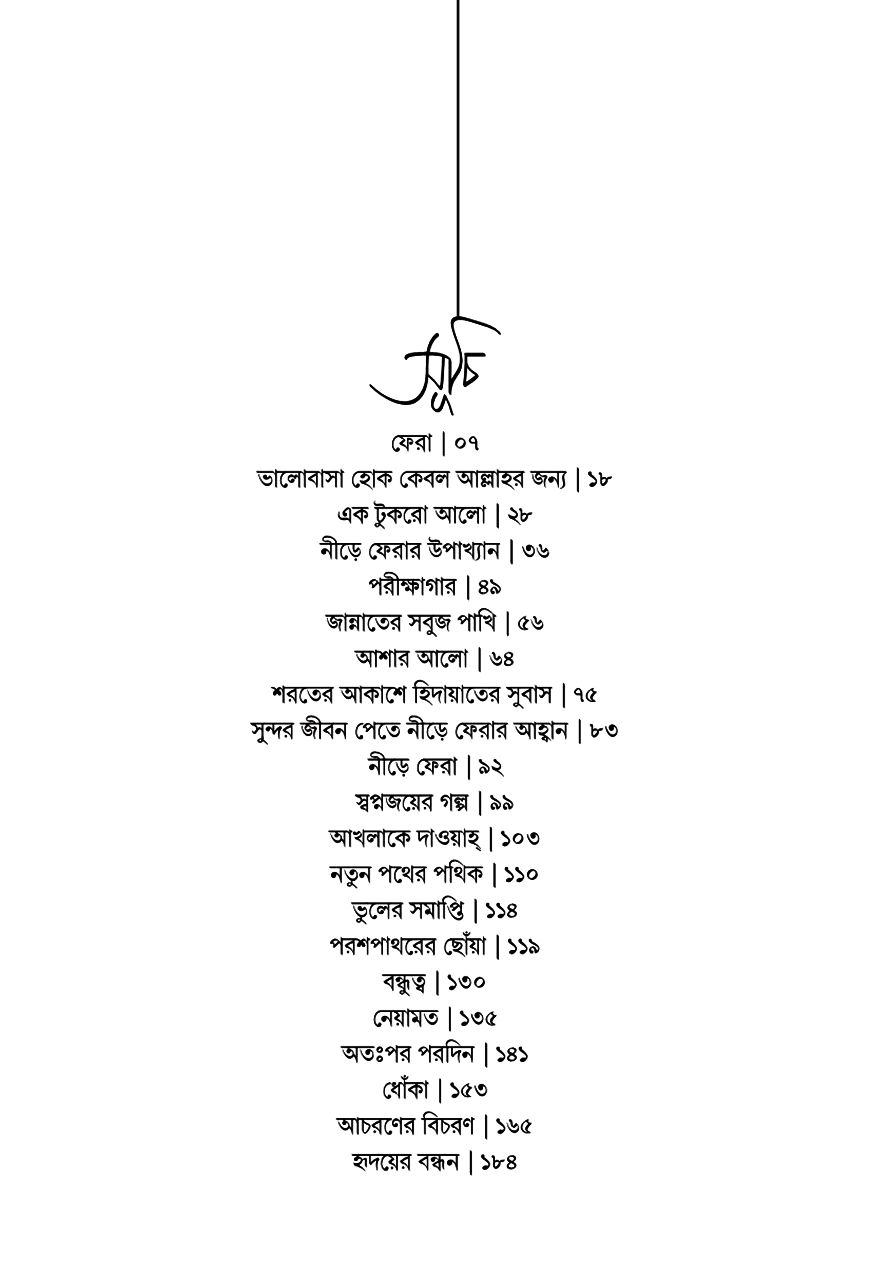 সূচি
ফেরা | ০৭
ভালোবাসা হোক কেবল আল্লাহর জন্য | ১৮
এক টুকরো আলো | ২৮
নীড়ে ফেরার উপাখ্যান | ৩৬
পরীক্ষাগার | ৪৯
জান্নাতের সবুজ পাখি | ৫৬
আশার আলো | ৬৪
শরতের আকাশে হিদায়াতের সুবাস | ৭৫
সুন্দর জীবন পেতে নীড়ে ফেরার আহ্বান | ৮৩
নীড়ে ফেরা | ৯২
স্বপ্নজয়ের গল্প | ৯৯
আখলাকে দাওয়াহ্ | ১০৩
নতুন পথের পথিক | ১১০
ভুলের সমাপ্তি | ১১৪
পরশপাথরের ছোঁয়া | ১১৯
বন্ধুত্ব | ১৩০
নেয়ামত | ১৩৫
অতঃপর পরদিন | ১৪১
ধোঁকা | ১৫৩
আচরণের বিচরণ | ১৬৫
হৃদয়ের বন্ধন | ১৮৪